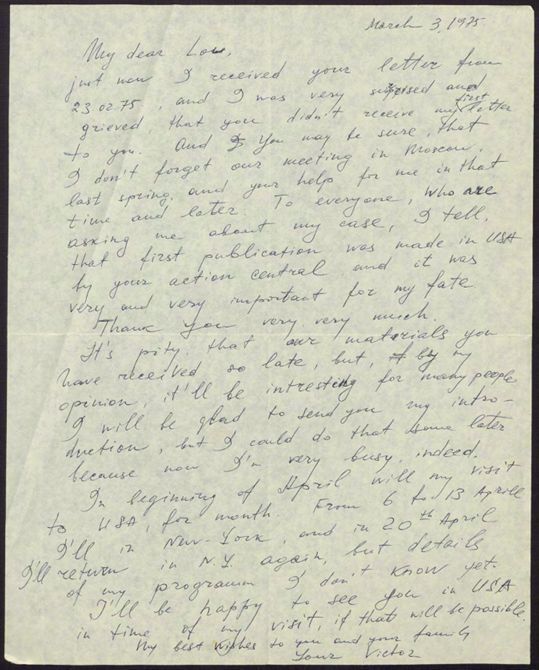 March 3, 1975
My dear Lou,
just now I received your letter from
23.02.75, and I was very surprised and
grieved that you didn't receive my first letter
to you. And I You may be sure, that
I don't forget our meeting in Moscow,
last spring, and your help for me in that
time and later. To everyone, who are
asking me about my case, I tell,
that first publication was made in USA
by your action central and it was
very and very important for my fate
Thank you very, very much.
It's pity, that our materials you
have received so late, but, by my
opinion, it'll be intresting for many people
I will be glad to send you my intro-
duction, but I could do that some later
because now I'm very busy, indeed.
In beginning of April will my visit
to USA, for month. From 6 to 13 Aprill
I'll in New-York, and in 20th April
I'll return in N.Y. again, but details
of my programm I don't know yet.
I'll be happy to see you in USA
in time of my visit, if that will be possible.
My best wishes to you and your family
Your Victor